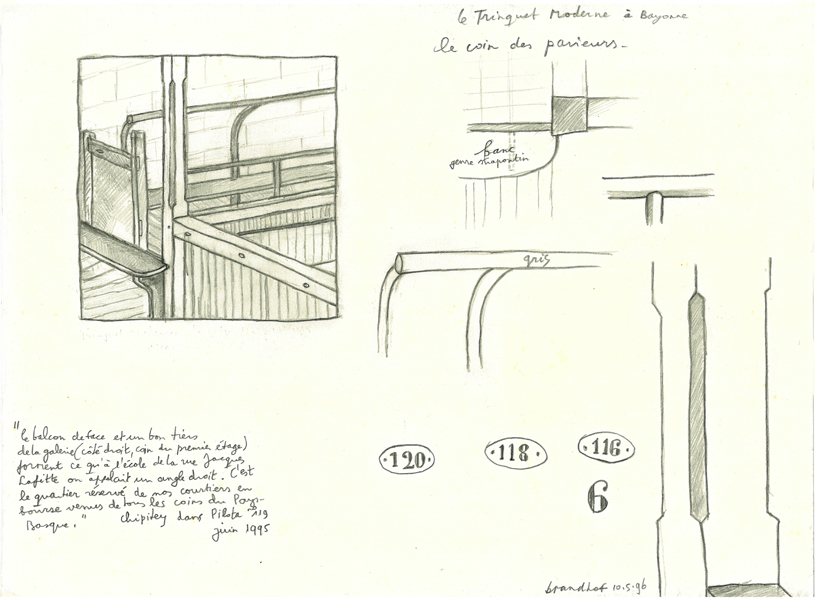 le Trinquet Moderne à Bayonne
le coin des parieurs_
banc
genre strapontin
gris
"le balcon de face et un bon tiers
de la galerie (côté droit, coin du premier étage)
forment ce qu'à l'école de la rue Jacques
Lafitte on appelait un angle droit. C'est
le quartier réservé de nos courtiers en
bourse venus de tous les coins du Pays-
Basque." Chipitey dans Pilota n°119
juin 1995
·120·
·118·
·116·
6
brandhof 10.5.96